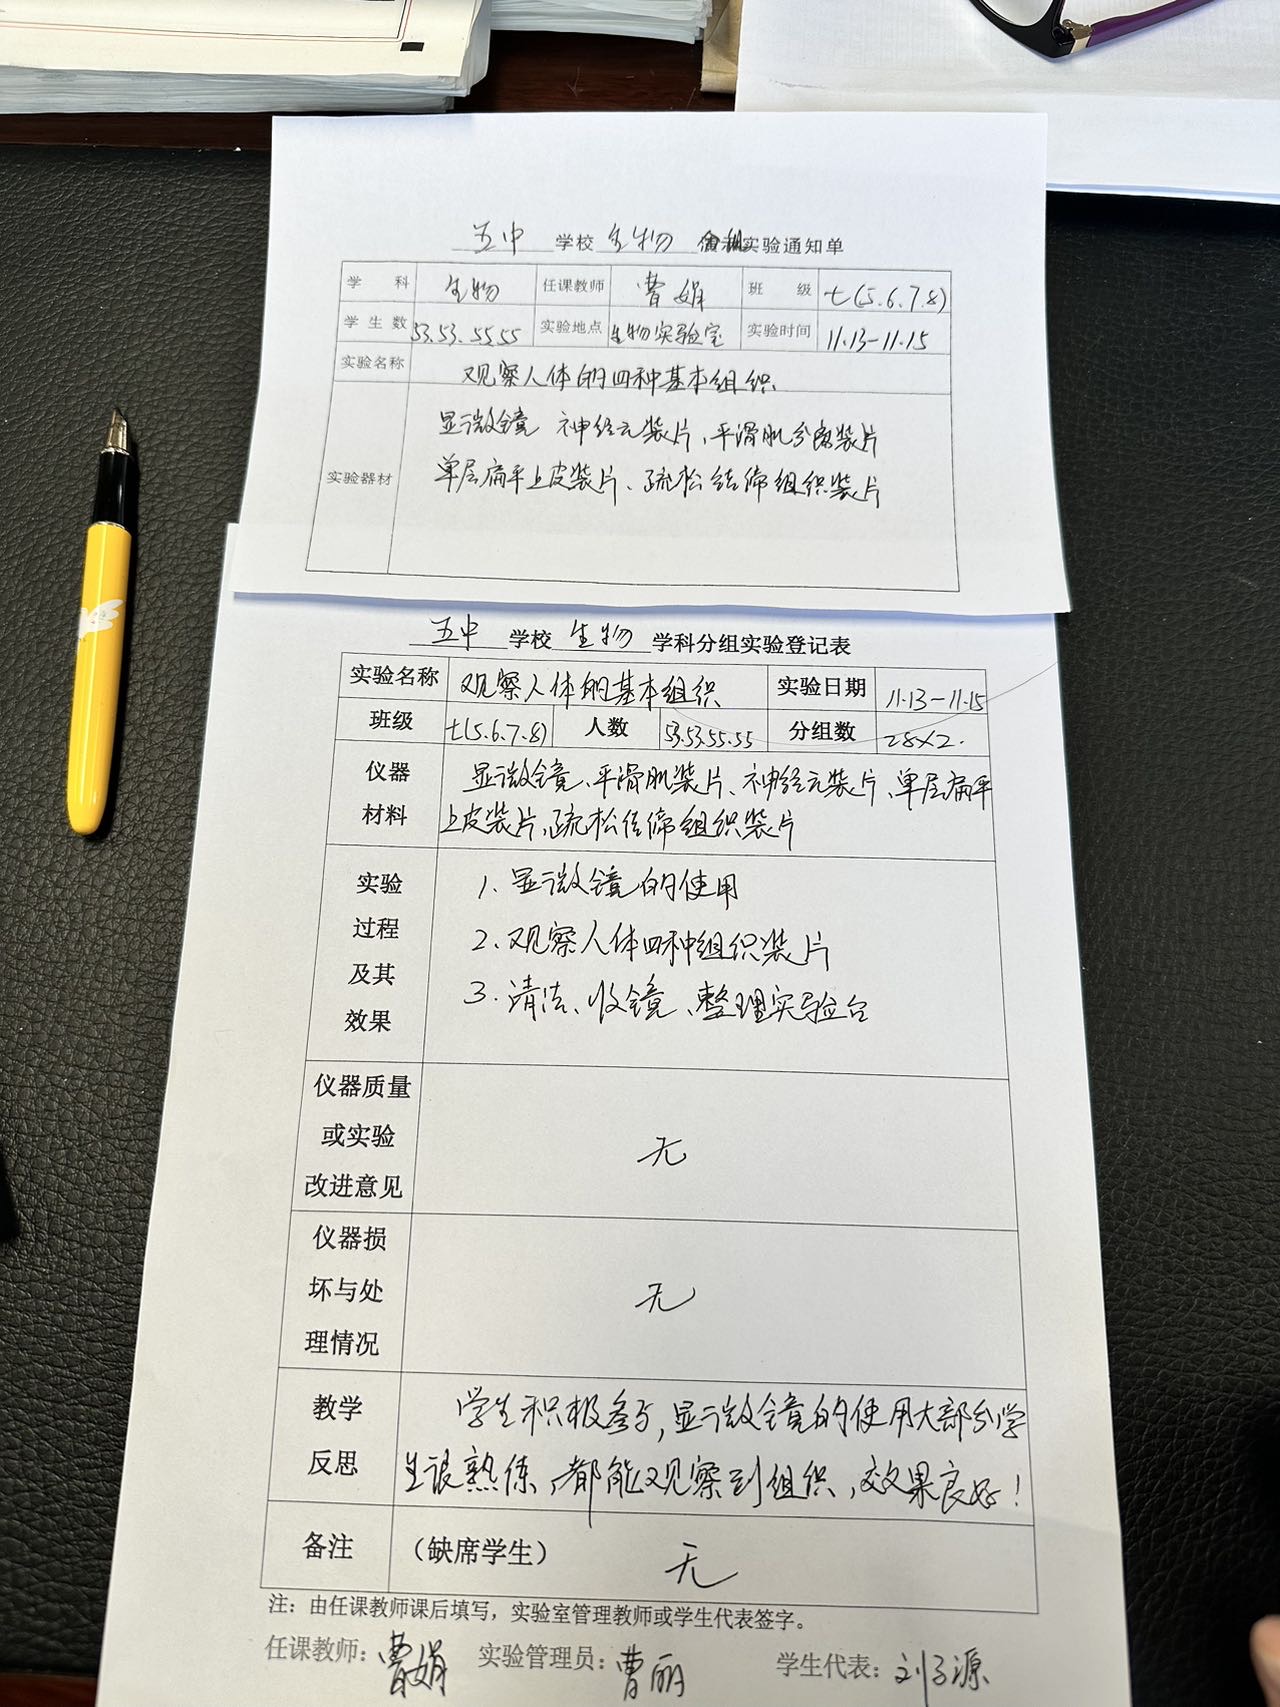 五中 学校 生物 实验通知单
学 科 生物 任课教师 曹娟 班 级 七(5.6.7.8)
学 生 数 53.53.55.55 实验地点 生物实验室 实验时间 11.13-11.15
实验名称 观察人体的四种基本组织
显微镜 神经元装片、平滑肌分离装片
实验器材 单层扁平上皮装片、疏松结缔组织装片
五中 学校 生物 学科分组实验登记表
实验名称 观察人体的基本组织 实验日期 11.13-11.15
班级 七(5.6.7.8) 人数 53.53.55.55 分组数 28×2.
仪器 显微镜、平滑肌装片、神经元装片、单层扁平
材料 上皮装片、疏松结缔组织装片
实验 1. 显微镜的使用
过程 2. 观察人体四种组织装片
及其 3. 清洁、收镜、整理实验台
效果
仪器质量
或实验 无
改进意见
仪器损
坏与处 无
理情况
教学 学生积极参与,显微镜的使用大部分学
反思 生很熟练,都能观察到组织,效果良好!
备注 (缺席学生) 无
注:由任课教师课后填写,实验室管理教师或学生代表签字。
任课教师:曹娟 实验管理员:曹丽 学生代表:刘子源